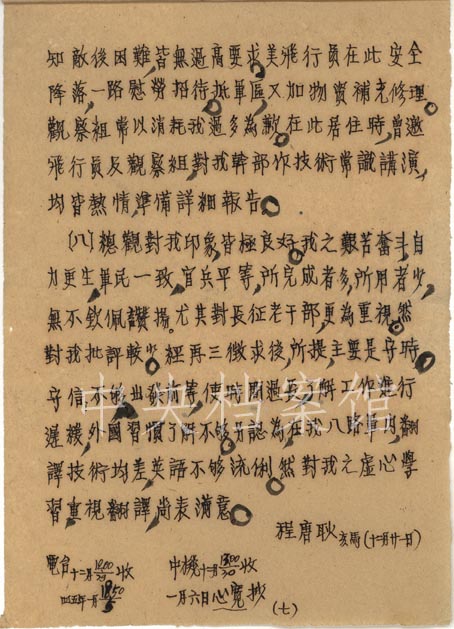 知敵後困難，皆無過高要求，美飛行員在此安全
降落，一路慰勞招待，抵軍區又加物資補充修理，
觀察組常以消耗我過多為歉，在此居住時，曾邀
飛行員及觀察組，對我幹部作技術常識講演，
均皆熱情準備詳細報告。
(八)總觀對我印象，皆極良好，我之艱苦奮斗，自
力更生，軍民一致，官兵平等，所完成者多，所用者少，
無不欽佩讚揚。尤其對長征老干部，更為重視，然
對我批評較少。經再三徵求後，所提主要是守時
守信，不够，出發前等，使時間過長，了解工作進行
遲緩，外國習慣了解不够，另認為在我八路軍內，翻
譯技術均差，英語不够流俐，然對我之虛心學
習，重視翻譯，尚表滿意。
程唐耿 亥馬(十二月廿一日)
電台十二月 收 中機十二月1300/30收
四五年一月 一月六日心寬抄
(七)
中央档案馆